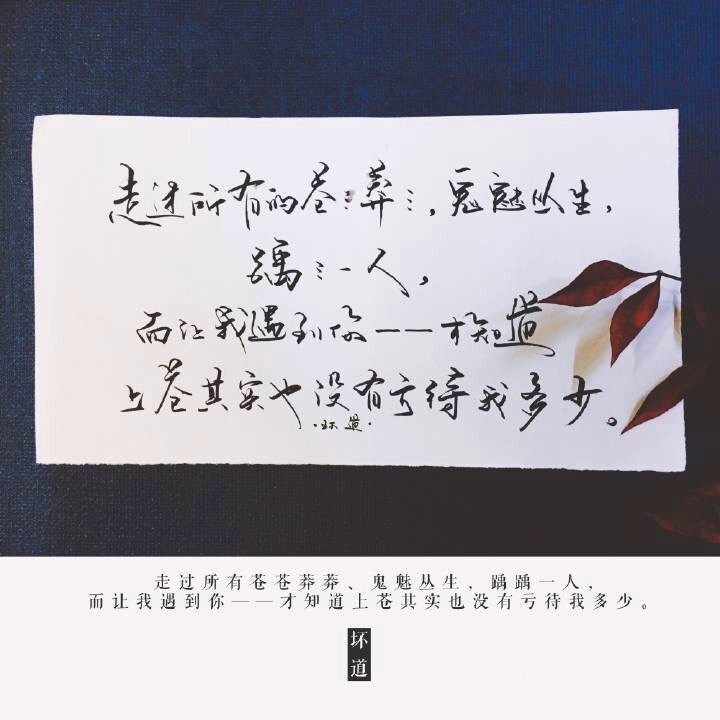 走过所有的苍〻莽〻,鬼魅丛生,
踽〻一人,
而让我遇到你——才知道
上苍其实也没有亏待我多少。
·坏道·
走过所有苍苍莽莽、鬼魅丛生,踽踽一人,
而让我遇到你——才知道上苍其实也没有亏待我多少。
坏道